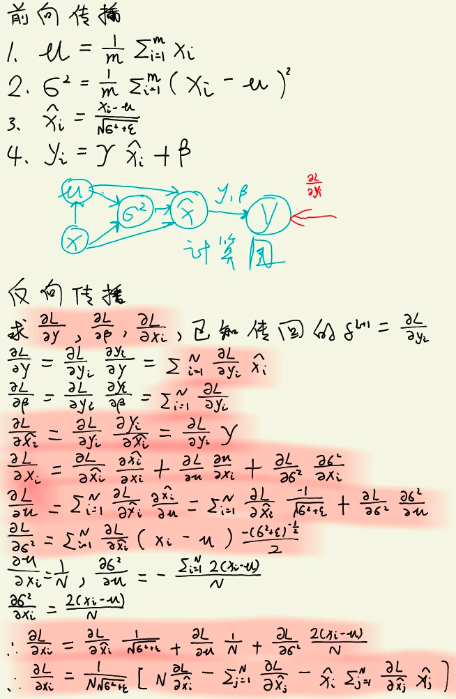 前向传播
1. u = 1/m Σ_{i=1}^m x_i
2. σ² = 1/m Σ_{i=1}^m (x_i - u)²
3. x̂_i = (x_i - u)/√(σ²+ε)
4. y_i = γ x̂_i + β
u
σ²
x̂
γ,β
y
∂L/∂y_i
x
计算图
反向传播
求 ∂L/∂γ, ∂L/∂β, ∂L/∂x_i, 已知传回的 δ^{l+1} = ∂L/∂y_i
∂L/∂γ = ∂L/∂y_i ∂y_i/∂γ = Σ_{i=1}^N ∂L/∂y_i x̂_i
∂L/∂β = ∂L/∂y_i ∂y_i/∂β = Σ_{i=1}^N ∂L/∂y_i
∂L/∂x̂_i = ∂L/∂y_i ∂y_i/∂x̂_i = ∂L/∂y_i γ
∂L/∂x_i = ∂L/∂x̂_i ∂x̂_i/∂x_i + ∂L/∂u ∂u/∂x_i + ∂L/∂σ² ∂σ²/∂x_i
∂L/∂u = Σ_{i=1}^N ∂L/∂x̂_i ∂x̂_i/∂u = Σ_{i=1}^N ∂L/∂x̂_i (-1)/√(σ²+ε) + ∂L/∂σ² ∂σ²/∂u
∂L/∂σ² = Σ_{i=1}^N ∂L/∂x̂_i (x_i - u) (-(σ²+ε)^{-3/2})/2
∂u/∂x_i = 1/N, ∂σ²/∂u = - (Σ_{i=1}^N 2(x_i-u))/N
∂σ²/∂x_i = 2(x_i-u)/N
∴ ∂L/∂x_i = ∂L/∂x̂_i 1/√(σ²+ε) + ∂L/∂u 1/N + ∂L/∂σ² 2(x_i-u)/N
∴ ∂L/∂x_i = 1/(N√(σ²+ε)) [N ∂L/∂x̂_i - Σ_{j=1}^N ∂L/∂x̂_j - x̂_i Σ_{j=1}^N ∂L/∂x̂_j x̂_j]